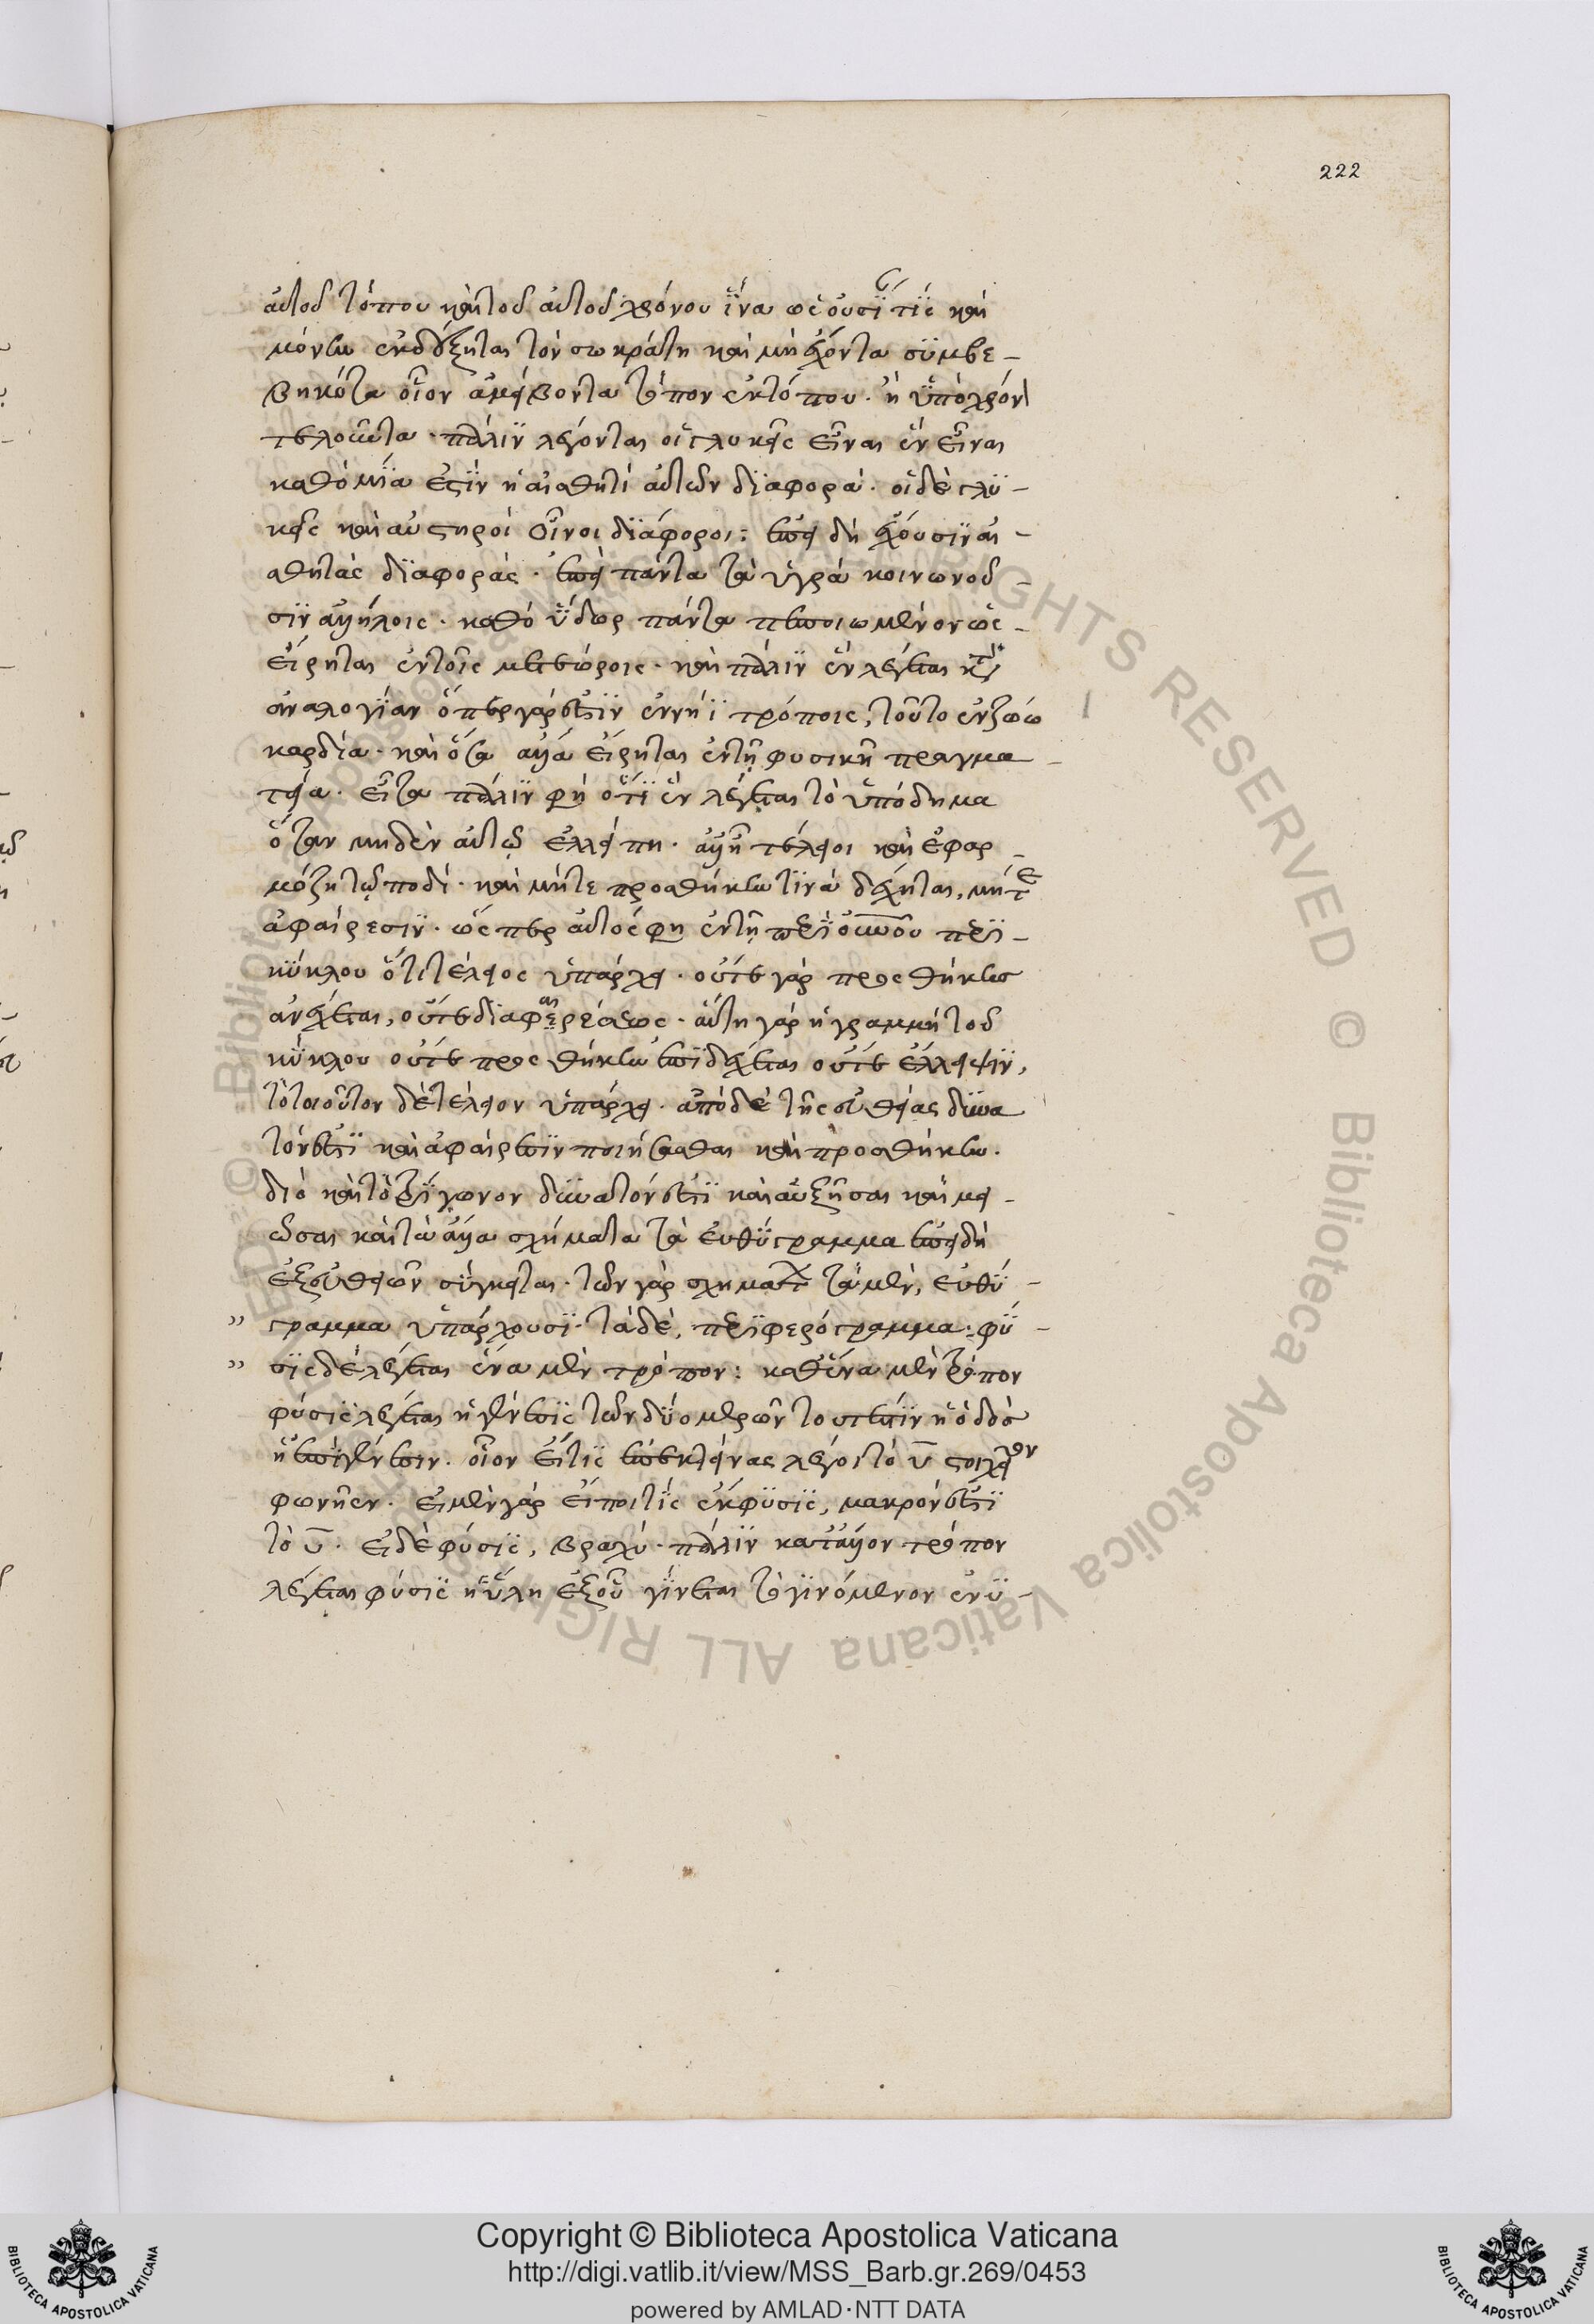 222
αὐτοῦ τόπου καὶ τοῦ αὐτοῦ χρόνου ἵνα ὡς οὐσί τίς καὶ
μόνην ἐκδέξηται τὸν σωκράτη καὶ μὴ ἔχοντα συμβε-
βηκότα οἷον ἀμείβοντα τόπον ἐκ τόπου. ἢ ὑπὸ χρόν
τελοῦντα. πάλιν λέγονται οἱ γλυκεῖς εἶναι ἓν εἶναι
καθὸ μία ἐστὶν ἡ αἰσθητὶ αὐτῶν διαφορά. οἱ δὲ γλυ-
κεῖς καὶ αὐστηροὶ οἶνοι διάφοροι: ἐπεὶ δὴ ἔχουσιν αἰ-
σθητὰς διαφοράς. ἐπεὶ πάντα τὰ ὑγρὰ κοινωνοῦ-
σιν ἀλλήλοις. καθὸ ὕδωρ πάντα πεποιωμένον ὡς-
εἴρηται ἐν τοῖς μετεώροις. καὶ πάλιν ἓν λέγεται κατὰ τὴν
ἀναλογίαν ὅπερ γάρ ἐστιν ἐν νηῒ τρόπις, τοῦτο ἐν ζώω
καρδία. καὶ ὅσα ἄλλα εἴρηται ἐν τῇ φυσικῇ πραγμα-
τεία. εἶτα πάλιν φὴ ὅτι ἓν λέγεται τὸ ὑπόδημα
ὅταν μηδὲν αὐτῷ ἐλλείπη. ἀλλ' ἦ τέλειοι καὶ ἐφαρ-
μόζη τῷ ποδί. καὶ μήτε προσθήκην τινὰ δέχηται, μήτε
ἀφαίρεσιν. ὥς περ αὐτός φη ἐν τῇ περὶ οὐνοῦ περὶ-
κύκλου ὅτι τέλειος ὑπάρχει. οὔτε γὰρ προσθήκης
ἀνέχεται, οὔτε διαφαιρέσεως. αὕτη γὰρ ἡ γραμμὴ τοῦ
κύκλου οὔτε προσθήκην ἐπιδέχεται οὔτε ἔλλειψιν,
τὸ τοιοῦτον δὲ τέλειον ὑπάρχει. ἀπὸ δὲ τῆς εὐθείας δυνα
τόν ἐστι καὶ ἀφαίρεσιν ποιήσασθαι καὶ προσθήκην.
διὸ καὶ τὸ τρίγωνον δυνατόν ἐστι καὶ αὐξῆσαι καὶ μει-
ῶσαι καὶ τὰ ἄλλα σχήματα τὰ εὐθύγραμμα ἐπειδὴ
ἐξ εὐθειῶν σύγκειται. τῶν γὰρ σχημάτων τὰ μὲν, εὐθύ-
” γραμμα ὑπάρχουσι. τὰ δὲ, περιφερόγραμμα: φύ-
” σις δὲ λέγεται ἕνα μὲν τρόπον: καθ' ἕνα μὲν τρόπον
φύσις λέγεται ἡ γένεσις τῶν δύο μερῶν τουτέστιν ἡ ὁδὸς
ἡ ἐπὶ γένεσιν. οἷον εἴ τις ἐπεκτείνας λέγοι τὸ υ στοιχεῖον
φωνῆεν. εἰ μὲν γὰρ εἴποι τὶς ἐκφύσις, μακρόν ἐστι
τὸ υ. εἰ δὲ φύσις, βραχύ. πάλιν κατ' ἄλλον τρόπον
λέγεται φύσις ἡ ὕλη ἐξ οὗ γίνεται τὸ γινόμενον ἐνυ-
© Biblioteca Apostolica Vaticana ALL RIGHTS RESERVED
Copyright © Biblioteca Apostolica Vaticana
http://digi.vatlib.it/view/MSS_Barb.gr.269/0453
powered by AMLAD·NTT DATA
BIBLIOTECA APOSTOLICA VATICANA
BIBLIOTECA APOSTOLICA VATICANA